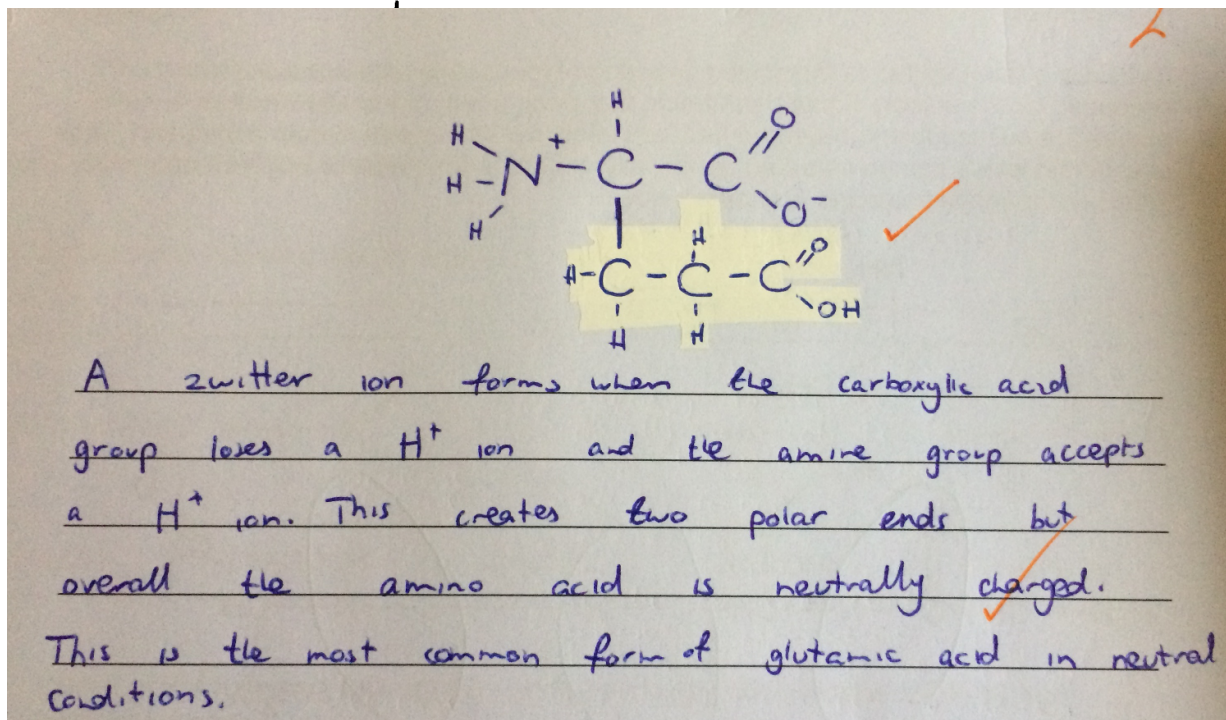 H
H
H
H
N
+
C
C
O
O⁻
H
H
C
C
C
O
OH
H
H
A zwitter ion forms when the carboxylic acid
group loses a H⁺ ion and the amine group accepts
a H⁺ ion. This creates two polar ends but
overall the amino acid is neutrally charged.
This is the most common form of glutamic acid in neutral
conditions.